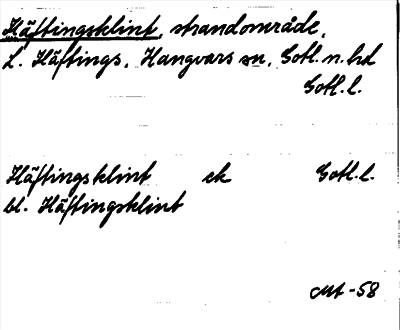 Häftingsklint, strandområde,
L. Häftings, Hangvars sn, Gotl. n. hd
Gotl. l.
Häftingsklint ek Gotl. l.
bl. Häftingsklint
-58